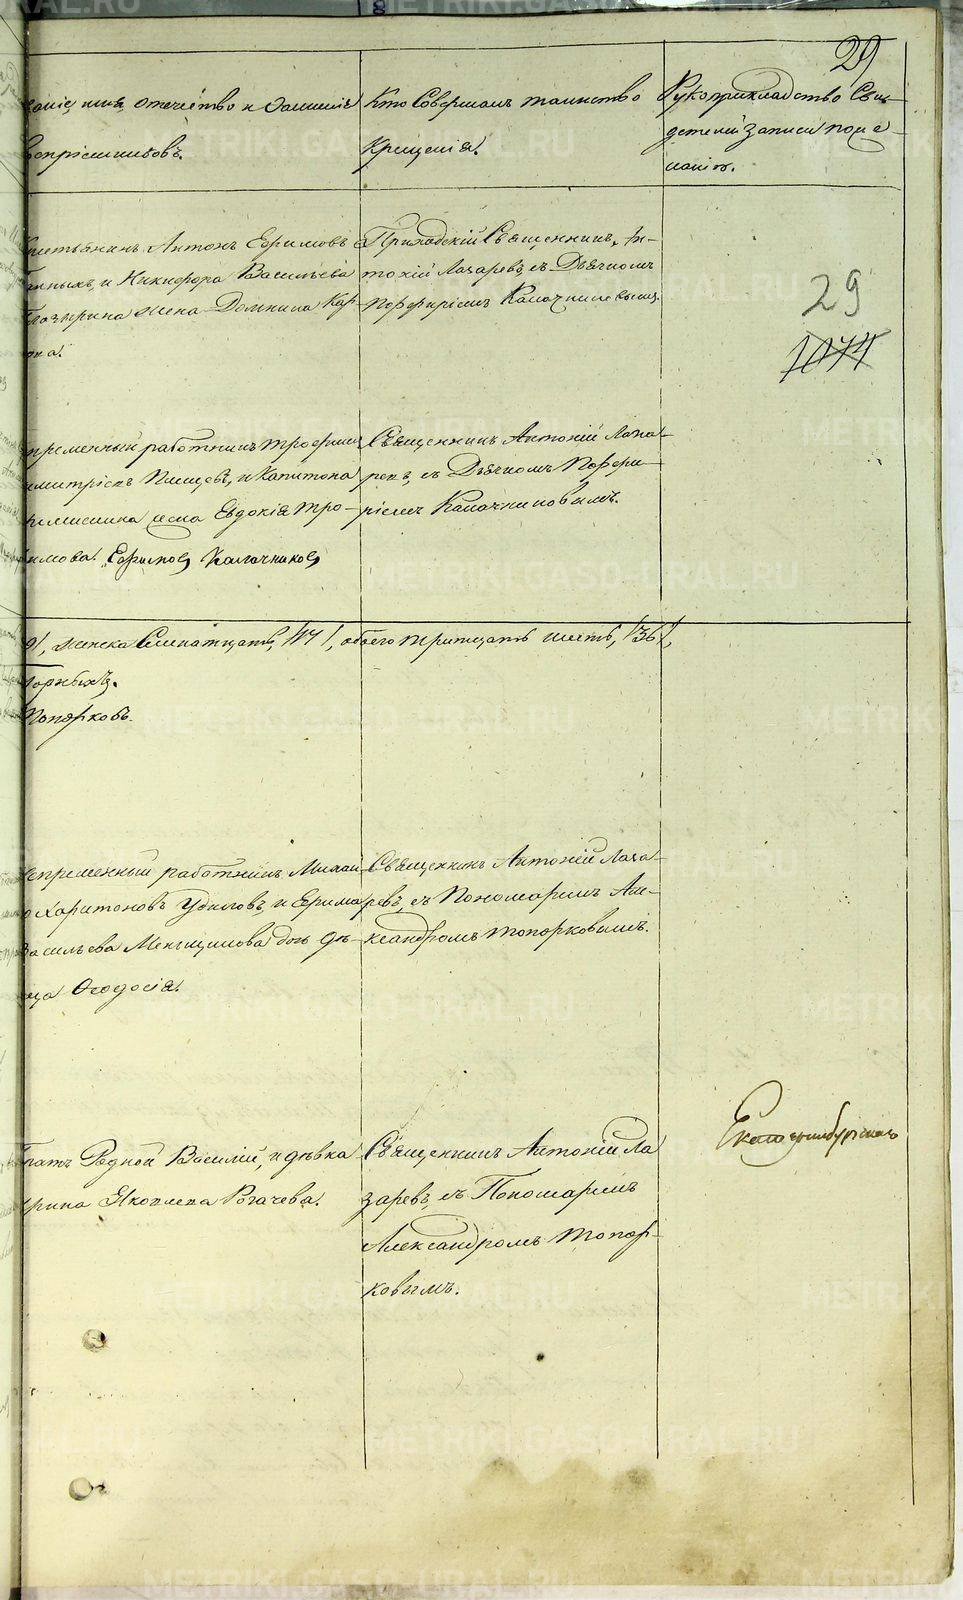 29
званіе имя, отечество и фамилія
Воспріемниковъ.
Кто Совершалъ таинство
Крещенія.
Рукоприкладство Сви-
детелей записи по же-
ланію.
Крестьянинъ Антонъ Ефимовъ
и Никифора Васильева
жена Домника Кар-
пова.
Приходскій Священникъ Ан-
тоній Лазаревъ, съ Дьячкомъ
Порфиріемъ Калачниковымъ.
29
1074
Непременный работникъ Трофимъ
Димитріевъ и Капитона
жена Евдокія Тро-
фимова. Ефимовъ Калачниковъ
Священникъ Антоній Лаза-
ревъ, съ Дьячкомъ Порфи-
ріемъ Калачниковымъ.
женска Семнатцать, /17/, обоего тритцать шесть, /36/,
Топорковъ.
Непременный работникъ Михаи-
ло Харитоновъ и Ефима
Васильева Меньщикова дочь дѣ-
вица Феодосія.
Священникъ Антоній Лаза-
ревъ, съ Пономаремъ Але-
ксандромъ Топорковымъ.
Братъ Родной Василій, и дѣвка
Ирина Яковлева Рогачева.
Священникъ Антоній Ла
заревъ, съ Пономаремъ
Александромъ Топор-
ковымъ.
Екатеринбургскаго
METRIKI.GASO-URAL.RU